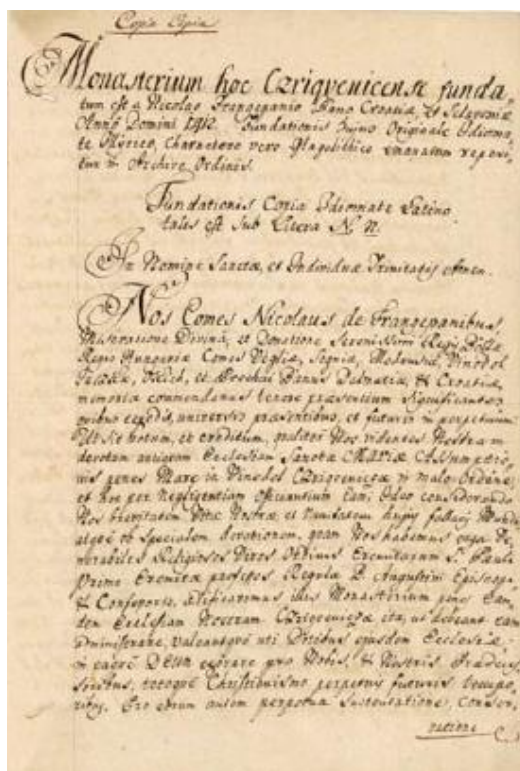 Copia Copiæ
Monasterium hoc Czriqvenicense funda-
tum est a Nicolao Frangepanio Bano Croatiæ, et Sclavoniæ
Anno Domini 1412. Fundationis hujus Originale Idioma-
te Illÿrico, charactere vero Glagolithico emanatum reperi-
tur in Archivo Ordinis.
Fundationis Copia Idiomate Latino
talis est Sub Litera N. n.
In Nomine Sanctæ, et Individuæ Trinitatis Amen.
Nos Comes Nicolaus de Frangepanibus,
Miseratione Divina, et Donatione Serenissimi Regis Bellæ
Regis Hungariæ Comes Vegliæ, Segniæ, Modrussiæ, Vinodol
et Bannus Dalmatiæ, & Croatiæ,
memoriæ commendamus tenore præsentium significantes
quibus expedit, universis præsentibus, et futuris in perpetuum
Ut sit notum, et creditum, qualiter Nos videntes Nostram
devotam antiquam Ecclesiam Sanctæ MARIÆ Assumptio-
nis penes Mare in Vinodol Czriqvenicæ in malo Ordine,
et hoc per negligentiam Officiantium eam, ideo considerando
Nos brevitatem Vitæ Nostræ, et Vanitatem hujus fallacis Mundi,
atque ob Specialem devotionem, quam Nos habemus erga Ve-
nerabiles Religiosos Viros Ordinis Eremitarum S. Pauli
Primi Eremitæ professos Regulæ D. Augustini Episcopi
& Confessoris, ædificavimus ibus Monasterium penes Ean-
dem Ecclesiam Nostram Czriqvenicæ ita, ut debeant eam
administrare, valeantque uti Dotibus ejusdem Ecclesiæ
DEUM exorare pro Nobis, & Nostris Prædeces-
soribus, totoque Christianismo perpetuis futuris tempo-
ribus. Pro eorum autem perpetua Sustentatione, conser-
vatione